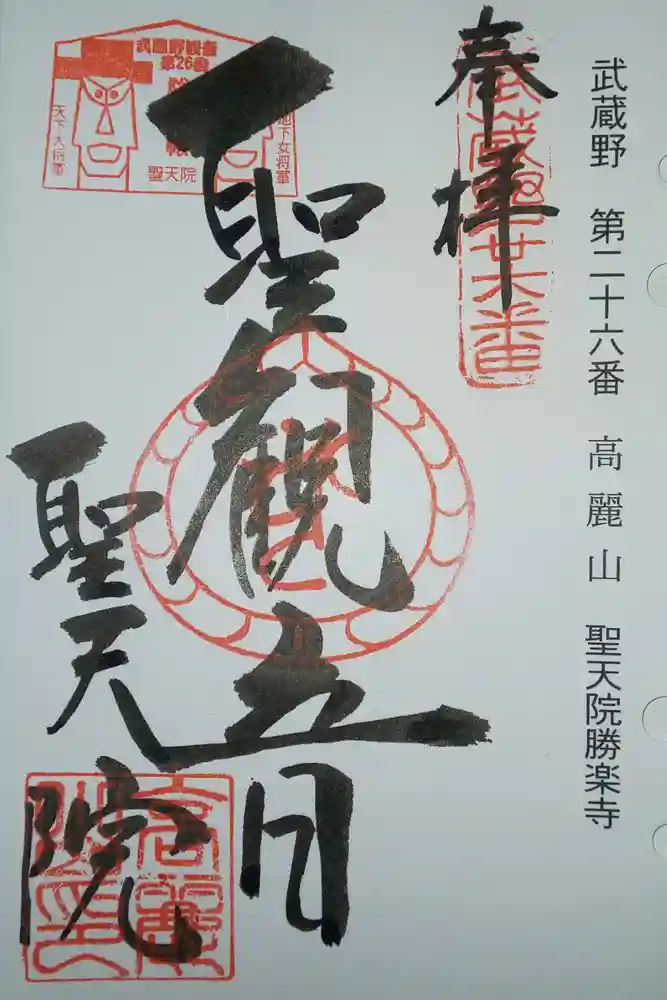 武蔵野 第二十六番 高麗山 聖天院勝楽寺
奉拝
武蔵野廿六番
聖観音
聖天院
武蔵野観音
第26番
天下大将軍
地下女将軍
聖天院